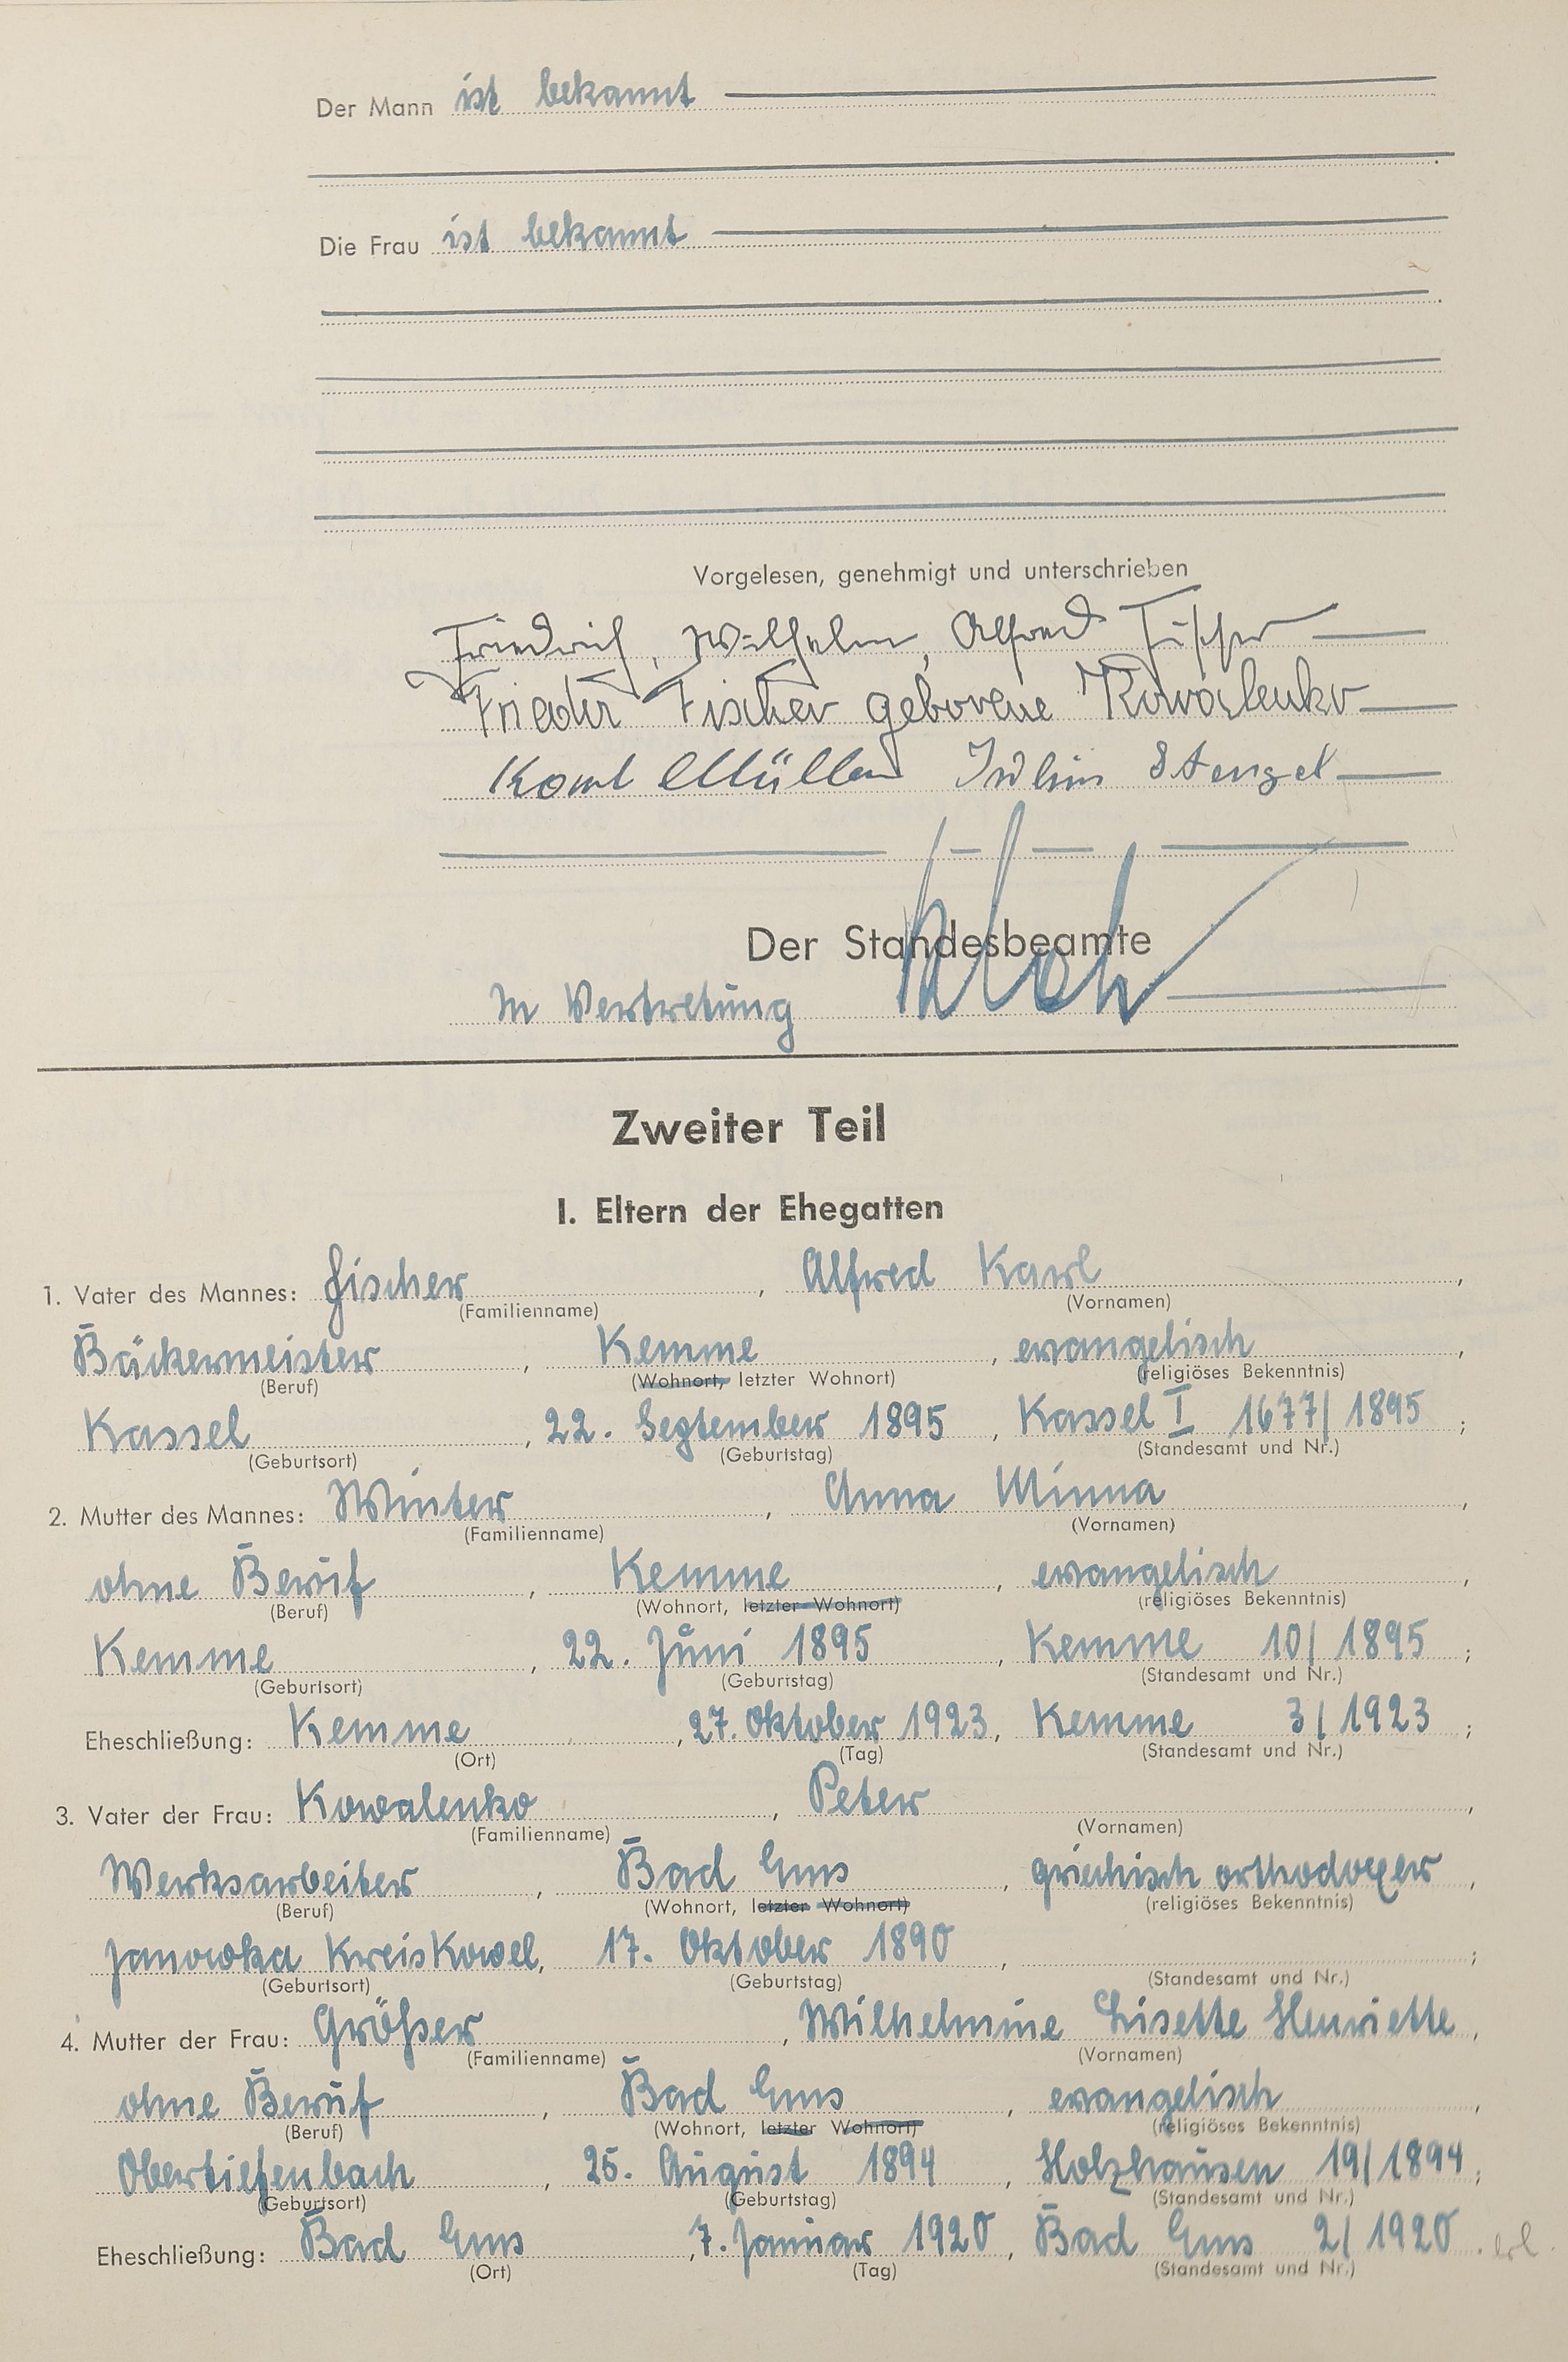 Der Mann ist bekannt
Die Frau ist bekannt
Vorgelesen, genehmigt und unterschrieben
Friedrich, Wilhelm, Alfred Fischer
Frieda Fischer geborene Kowalenko
Karl Müller Stengel
Der Standesbeamte
In Vertretung
Zweiter Teil
I. Eltern der Ehegatten
1. Vater des Mannes: Fischer, Alfred Karl,
(Familienname) (Vornamen)
Bäckermeister, Kemme, evangelisch,
(Beruf) (Wohnort, letzter Wohnort) (religiöses Bekenntnis)
Kassel, 22. September 1895, Kassel I 1677/1895;
(Geburtsort) (Geburtstag) (Standesamt und Nr.)
2. Mutter des Mannes: Winter, Anna Minna,
(Familienname) (Vornamen)
ohne Beruf, Kemme, evangelisch,
(Beruf) (Wohnort, letzter Wohnort) (religiöses Bekenntnis)
Kemme, 22. Juni 1895, Kemme 10/1895;
(Geburtsort) (Geburtstag) (Standesamt und Nr.)
Eheschließung: Kemme, 27. Oktober 1923, Kemme 3/1923;
(Ort) (Tag) (Standesamt und Nr.)
3. Vater der Frau: Kowalenko, Peter,
(Familienname) (Vornamen)
Werksarbeiter, Bad Ems, griechisch orthodoxer,
(Beruf) (Wohnort, letzter Wohnort) (religiöses Bekenntnis)
Janowka Kreis Kowel, 17. Oktober 1890, ;
(Geburtsort) (Geburtstag) (Standesamt und Nr.)
4. Mutter der Frau: Größer, Wilhelmine Lisette Henriette,
(Familienname) (Vornamen)
ohne Beruf, Bad Ems, evangelisch,
(Beruf) (Wohnort, letzter Wohnort) (religiöses Bekenntnis)
Obertiefenbach, 25. August 1894, Holzhausen 19/1894;
(Geburtsort) (Geburtstag) (Standesamt und Nr.)
Eheschließung: Bad Ems, 7. Januar 1920, Bad Ems 2/1920. erl.
(Ort) (Tag) (Standesamt und Nr.)